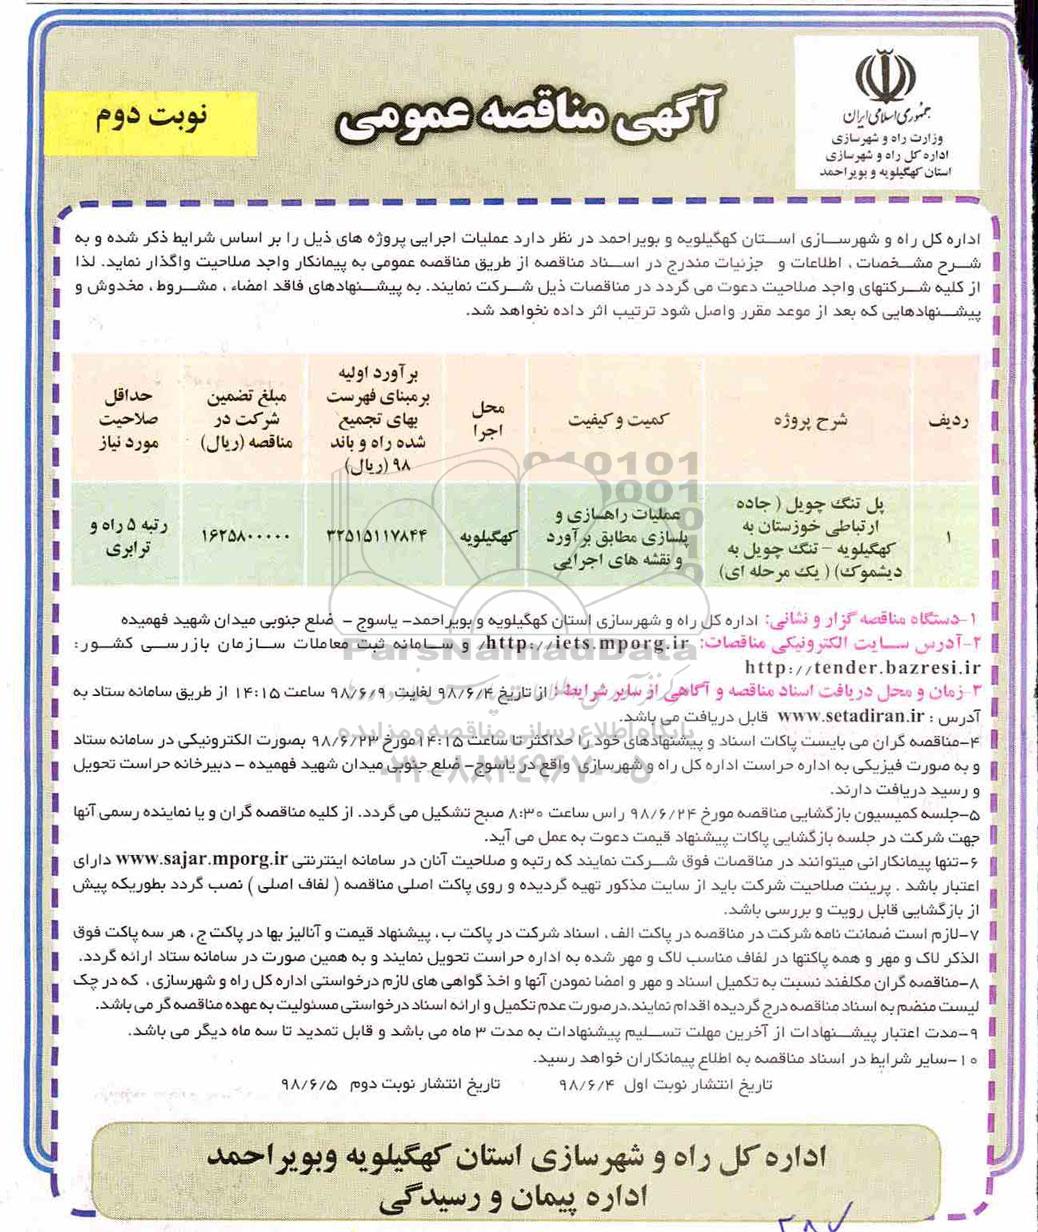 جمهوری اسلامی ایران
وزارت راه و شهرسازی
اداره کل راه و شهرسازی
استان کهگیلویه و بویراحمد
آگهی مناقصه عمومی
نوبت دوم
اداره کل راه و شهرسازی استان کهگیلویه و بویراحمد در نظر دارد عملیات اجرایی پروژه های ذیل را بر اساس شرایط ذکر شده و به
شرح مشخصات ، اطلاعات و جزئیات مندرج در اسناد مناقصه از طریق مناقصه عمومی به پیمانکار واجد صلاحیت واگذار نماید. لذا
از کلیه شرکتهای واجد صلاحیت دعوت می گردد در مناقصات ذیل شرکت نمایند. به پیشنهادهای فاقد امضاء ، مشروط ، مخدوش و
پیشنهادهایی که بعد از موعد مقرر واصل شود ترتیب اثر داده نخواهد شد.
ردیف
شرح پروژه
کمیت و کیفیت
محل
اجرا
برآورد اولیه
برمبنای فهرست
بهای تجمیع
شده راه و باند
۹۸ (ریال)
مبلغ تضمین
شرکت در
مناقصه (ریال)
حداقل
صلاحیت
مورد نیاز
۱
پل تنگ چویل ( جاده
ارتباطی خوزستان به
کهگیلویه – تنگ چویل به
دیشموک) ( یک مرحله ای)
عملیات راهسازی و
پلسازی مطابق برآورد
و نقشه های اجرایی
کهگیلویه
۳۲۵۱۵۱۱۷۸۴۴
۱۶۲۵۸۰۰۰۰۰
رتبه ۵ راه و
ترابری
۱-دستگاه مناقصه گزار و نشانی: اداره کل راه و شهرسازی استان کهگیلویه و بویراحمد- یاسوج - ضلع جنوبی میدان شهید فهمیده
۲-آدرس سایت الکترونیکی مناقصات: http://iets.mporg.ir/ و سامانه ثبت معاملات سازمان بازرسی کشور:
http://tender.bazresi.ir
۳-زمان و محل دریافت اسناد مناقصه و آگاهی از سایر شرایط : از تاریخ ۹۸/۶/۴ لغایت ۹۸/۶/۹ ساعت ۱۴:۱۵ از طریق سامانه ستاد به
آدرس : www.setadiran.ir قابل دریافت می باشد.
۴-مناقصه گران می بایست پاکات اسناد و پیشنهادهای خود را حداکثر تا ساعت ۱۴:۱۵ مورخ ۹۸/۶/۲۳ بصورت الکترونیکی در سامانه ستاد
و به صورت فیزیکی به اداره حراست اداره کل راه و شهرسازی واقع در یاسوج- ضلع جنوبی میدان شهید فهمیده - دبیرخانه حراست تحویل
و رسید دریافت دارند.
۵-جلسه کمیسیون بازگشایی مناقصه مورخ ۹۸/۶/۲۴ راس ساعت ۸:۳۰ صبح تشکیل می گردد. از کلیه مناقصه گران و یا نماینده رسمی آنها
جهت شرکت در جلسه بازگشایی پاکات پیشنهاد قیمت دعوت به عمل می آید.
۶-تنها پیمانکارانی میتوانند در مناقصات فوق شرکت نمایند که رتبه و صلاحیت آنان در سامانه اینترنتی www.sajar.mporg.ir دارای
اعتبار باشد . پرینت صلاحیت شرکت باید از سایت مذکور تهیه گردیده و روی پاکت اصلی مناقصه ( لفاف اصلی ) نصب گردد بطوریکه پیش
از بازگشایی قابل رویت و بررسی باشد.
۷-لازم است ضمانت نامه شرکت در مناقصه در پاکت الف ، اسناد شرکت در پاکت ب ، پیشنهاد قیمت و آنالیز بها در پاکت ج ، هر سه پاکت فوق
الذکر لاک و مهر و همه پاکتها در لفاف مناسب لاک و مهر شده به اداره حراست تحویل نمایند و به همین صورت در سامانه ستاد ارائه گردد.
۸-مناقصه گران مکلفند نسبت به تکمیل اسناد و مهر و امضا نمودن آنها و اخذ گواهی های لازم درخواستی اداره کل راه و شهرسازی ، که در چک
لیست منضم به اسناد مناقصه درج گردیده اقدام نمایند.درصورت عدم تکمیل و ارائه اسناد درخواستی مسئولیت به عهده مناقصه گر می باشد.
۹-مدت اعتبار پیشنهادات از آخرین مهلت تسلیم پیشنهادات به مدت ۳ ماه می باشد و قابل تمدید تا سه ماه دیگر می باشد.
۱۰-سایر شرایط در اسناد مناقصه به اطلاع پیمانکاران خواهد رسید.
تاریخ انتشار نوبت اول ۹۸/۶/۴ تاریخ انتشار نوبت دوم ۹۸/۶/۵
اداره کل راه و شهرسازی استان کهگیلویه وبویراحمد
اداره پیمان و رسیدگی
ParsNamadData
پایگاه اطلاع رسانی مناقصه و مزایده
۰۲۱-۸۸۳۴۹۶۷۰-۵